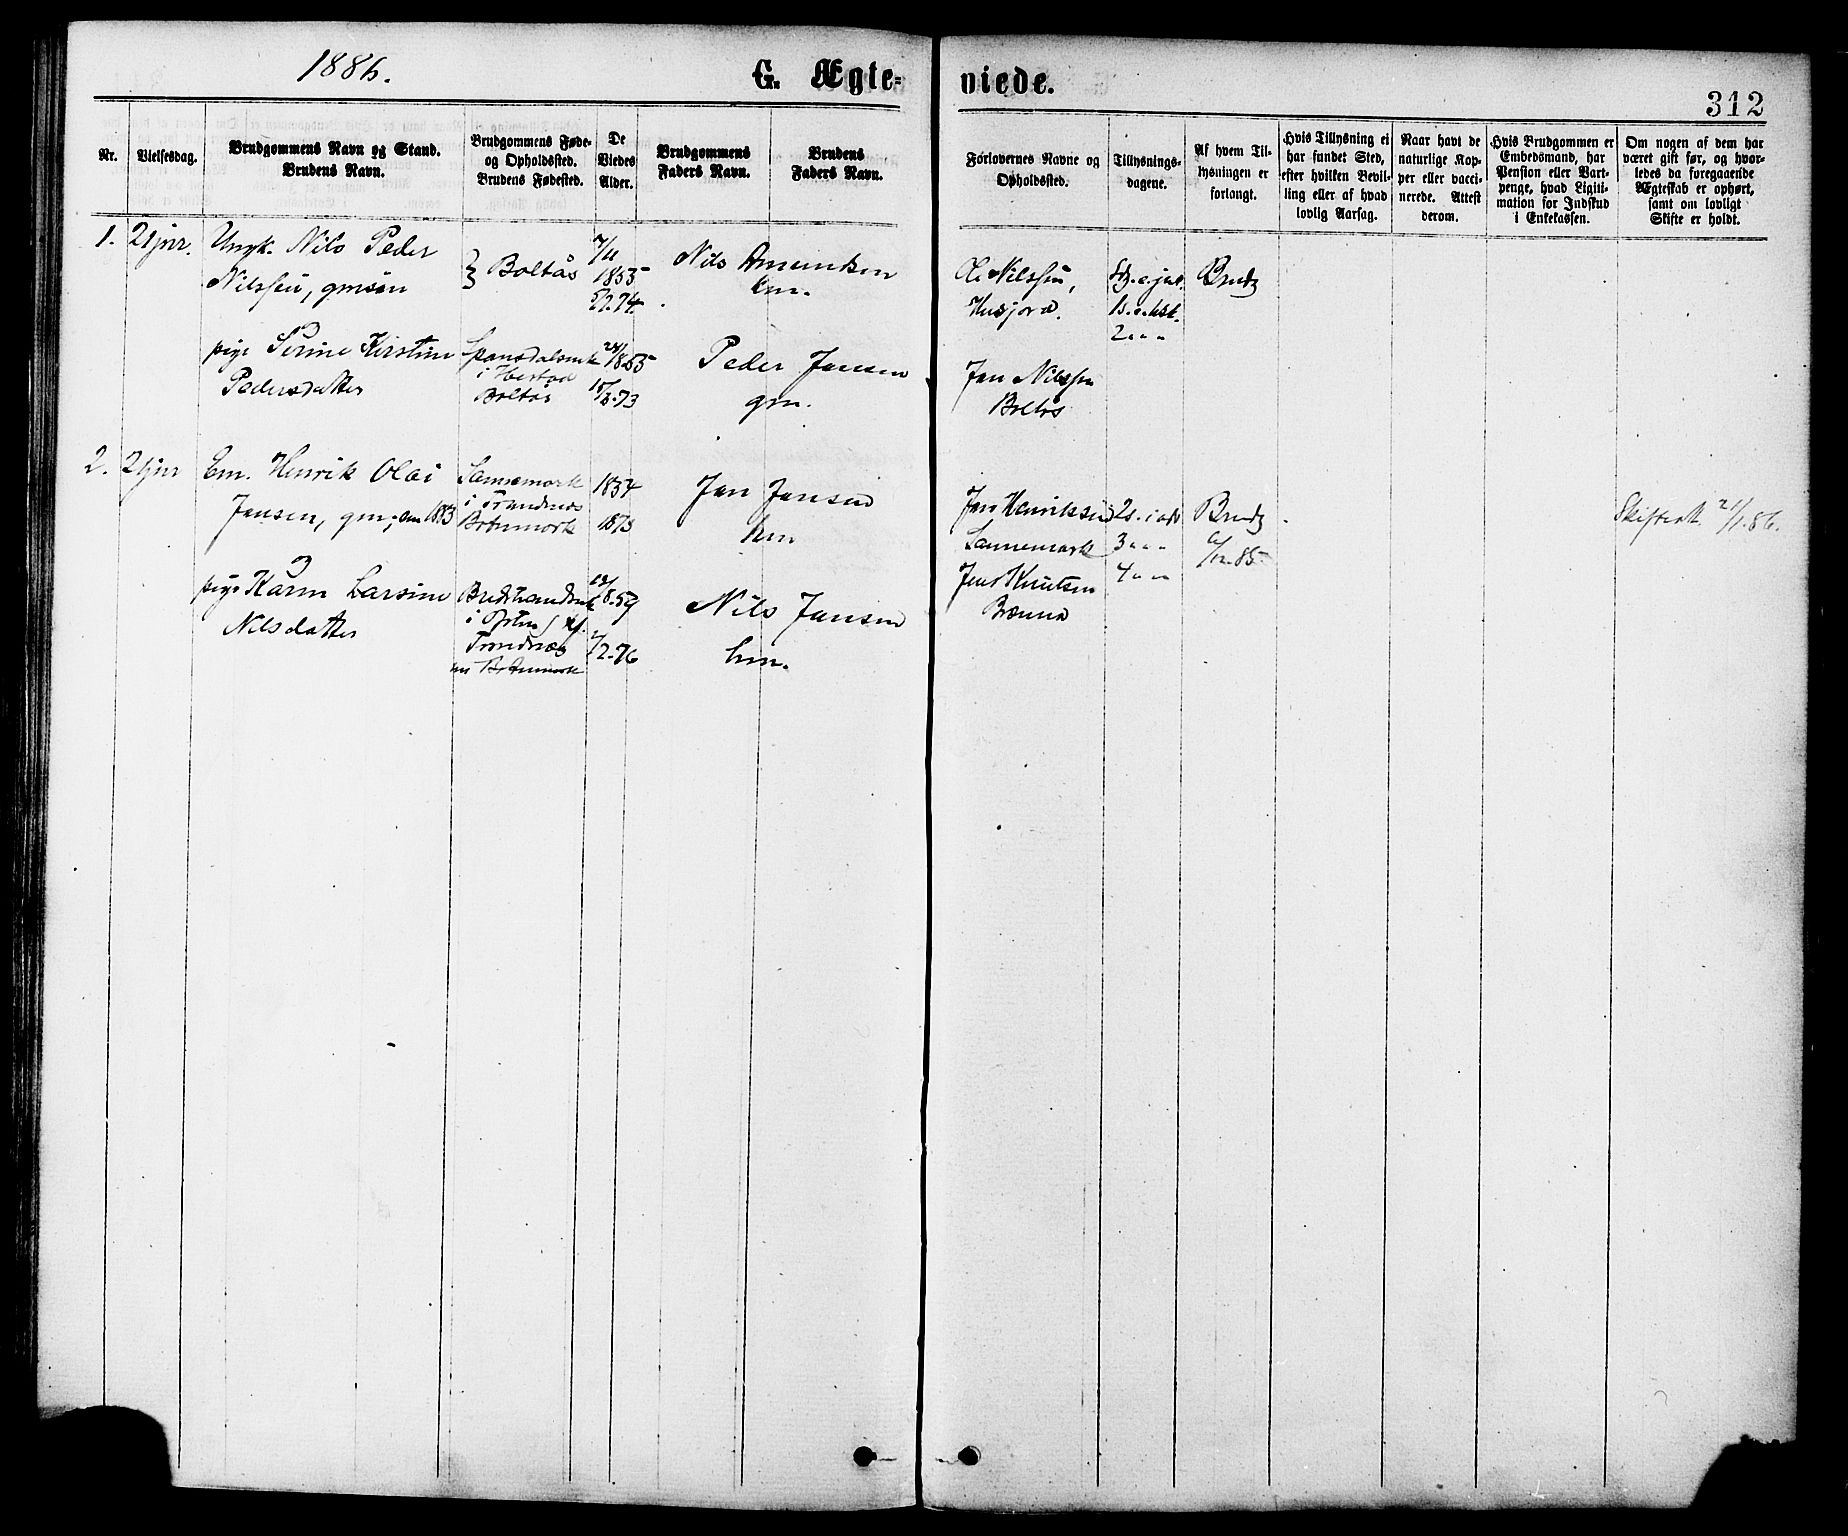 1886.
G. Ægte=
viede.
312
Nr.
Vielsesdag.
Brudgommens Navn og Stand.
Brudens Navn.
Brudgommens Føde-
og Opholdssted.
Brudens Fødested.
De
Viedes
Alder.
Brudgommens
Faders Navn.
Brudens
Faders Navn.
Forlovernes Navne og
Opholdssted.
Tillysnings-
dagene.
Af hvem Til-
lysningen er
forlangt.
Hvis Tillysning ei
har fundet Sted,
efter hvilken Bevil-
ling eller af hvad
lovlig Aarsag.
Naar havt de
naturlige Kop-
per eller vacci-
nerede. Attest
derom.
Hvis Brudgommen er
Embedsmand, har
Pension eller Vart-
penge, hvad Ligiti-
mation for Indskud
i Enkekassen.
Om nogen af dem har
været gift før, og hvor-
ledes da foregaaende
Ægteskab er ophørt,
samt om lovligt
Skifte er holdt.
1. 21jnr. Ungk. Nils Peder
Nilssen, gmsøn
Boltås
7/11
1855
Nils Amundsen
Ole Nilssen,
Brudg
pige Serine Kirstine
Pedersdatter
Boltås
Peder Jansen
gm.
Jan Nilssen
Boltås
2. 21jnr Em. Henrik Olai
Jansen, gm; em 1883
Sannemark
i Trondenes
Botnmark
1834
1873
Jan Jansen
hm
Jan Henrikssen
Sannemark
2s. i adv
3 " "
4 " "
Brudg
Skifteatt. 21/1.86.
pige Karen Larsine
Nilsdatter
Trondenæs
Nils Jansen
hm.
Jens Knutsen